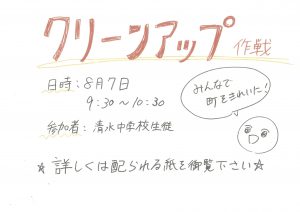 クリーンアップ作戦
日時：8月7日
9:30～10:30
参加者：清水中学校生徒
みんなで
町をきれいに！
☆詳しくは配られる紙を御覧下さい☆